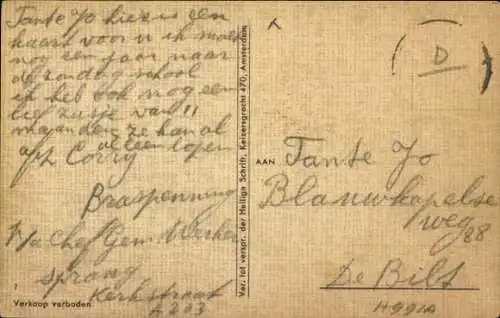 Tante Jo hier is een
kaart voor u ik moet
nog een jaar naar
de zondagschool
ik heb ook nog een
lief zusje van 11
maanden ze kan al
alleen lopen
Corry
Braspenning
p/a Chef Gem. Werken
Sprang
Kerkstraat
A203
Verkoop verboden
Ver. tot verspr. der Heilige Schrift, Keizersgracht 470, Amsterdam
D
AAN
Tante Jo
Blauwkapelse
weg 88
De Bilt
H991A